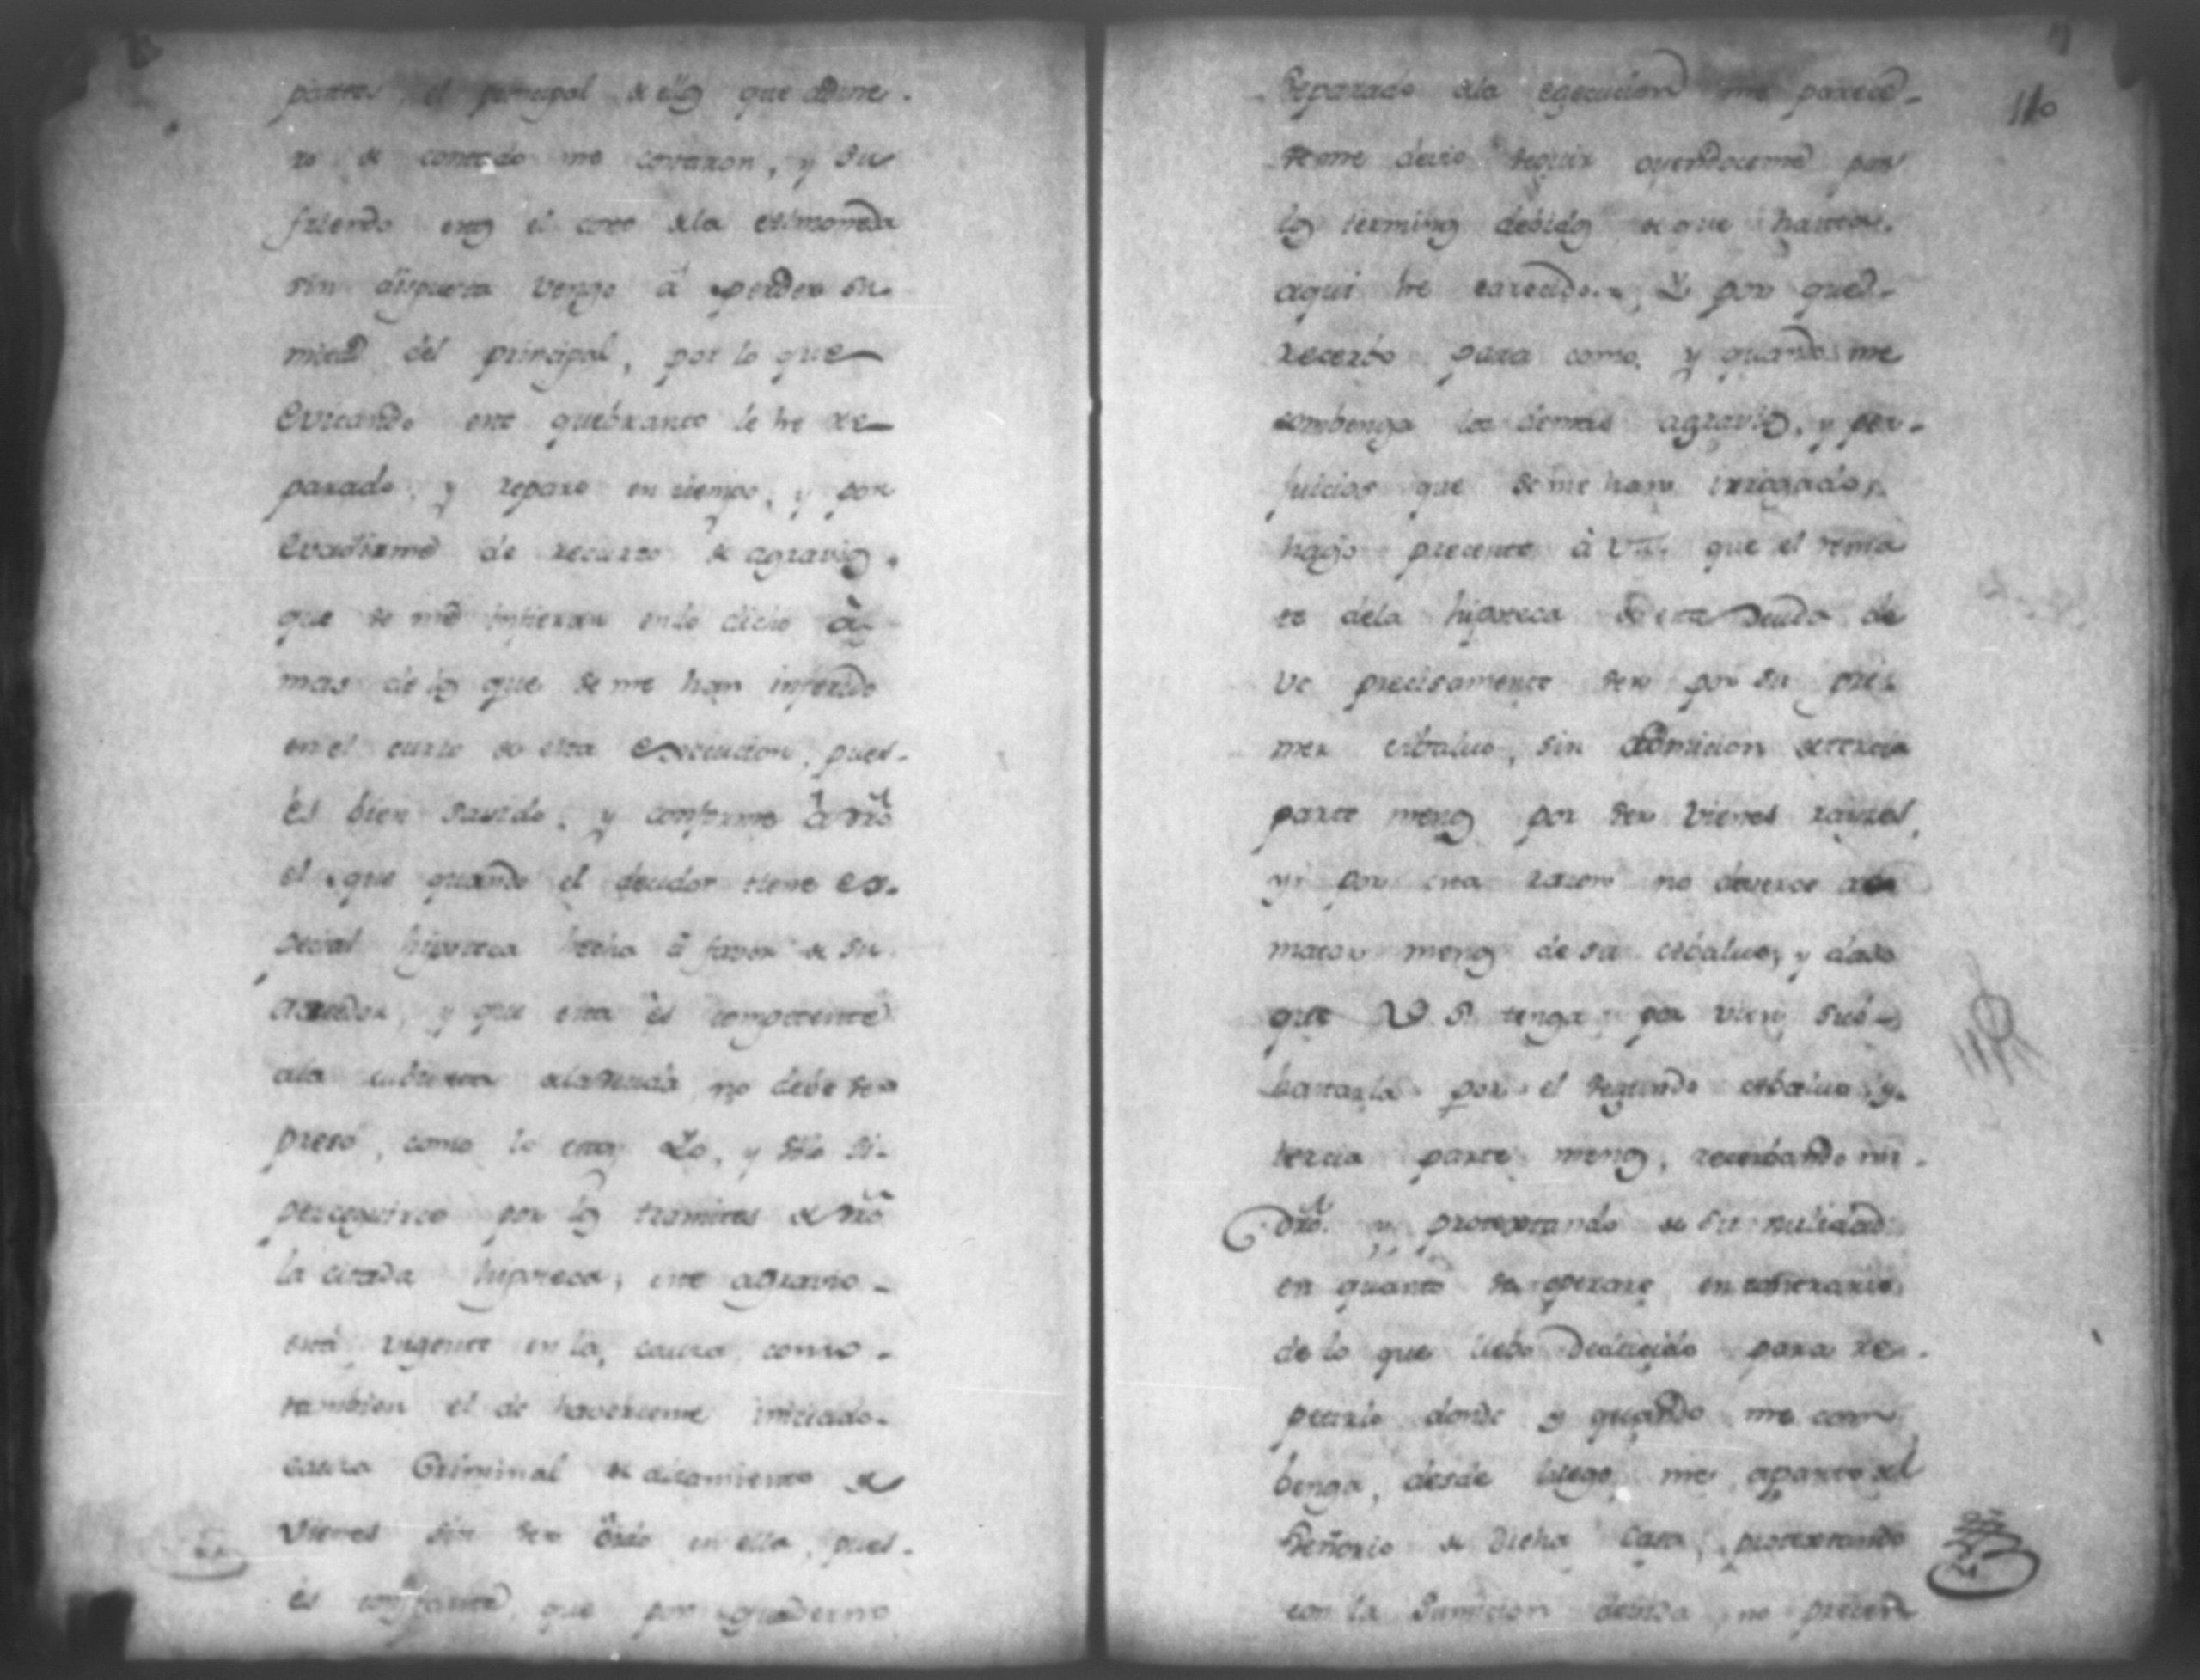 partes el principal de ellos que dine-
ro de contado me costaron, y su
friendo esto el coto dela estimoneda
sin disputa vengo â perder su
mitad del principal, por lo que
Evitando este quebranto le he re-
parado, y reparo en tiempo, y por
Evadirme de recurso de agravios
que se me infieran enlo dicho à
mas de los que se me han inferido
en el curso de esta Execucion, pues-
es bien savido, y conforme â dro
el que quando el deudor tiene es-
pecial hipoteca hecha â favor de su
acreedor, y que esta es competente
ala cubierta ala deuda no debe ser
preso, como lo estoy Yo, y solo si-
perseguirse por los tramites de dro
la citada hipoteca; este agravio-
está vigente en la causa como-
tambien el de haverseme iniciado-
causa Criminal de alsamiento de
vienes sin ser oido en ella, pues-
es constante que por quaderno
Separado dela egecucion me parece-
seme devio seguir oyendoceme por
los terminos debidos de que hasta-
aqui he carecido. Y por que-
recerbo para como, y quando me
combenga los demas agravios, y per-
juicios que seme han irrogado,
hago precente à V.S. que el rema
te dela hipoteca de esta Deuda de
ve precisamente ser por su pri-
mer abaluo, sin admicion de tercia
parte menos por ser vienes raizes,
y por esta razon no deverce re
matar menos de su abaluo, y dado
que V.S. tenga por vien sub-
hastarla por el segundo abaluo y-
tercia parte menos, recerbando mi-
dro. y protextando de su nulidad
en quanto se operare en contrario
de lo que llebo deducido para re-
petirlo donde y quando me com
benga, desde luego me aparto del
Señorio de dicha Casa, protextando
con la Sumicion debida no precen
110